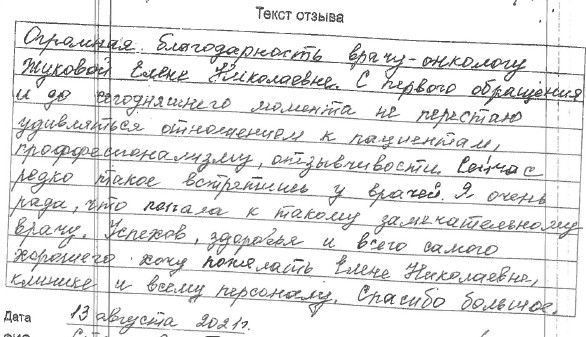 Текст отзыва
Огромная благодарность врачу-онкологу
Жуковой Елене Николаевне. С первого обращения
и до сегодняшнего момента не перестаю
удивляться отношением к пациентам,
проффесионализму, отзывчивости. Сейчас
редко такое встретишь у врачей. Я очень
рада, что попала к такому замечательному
врачу. Успехов, здоровья и всего самого
хорошего хочу пожелать Елене Николаевне,
клинике и всему персоналу. Спасибо большое.
Дата 13 августа 2021г.